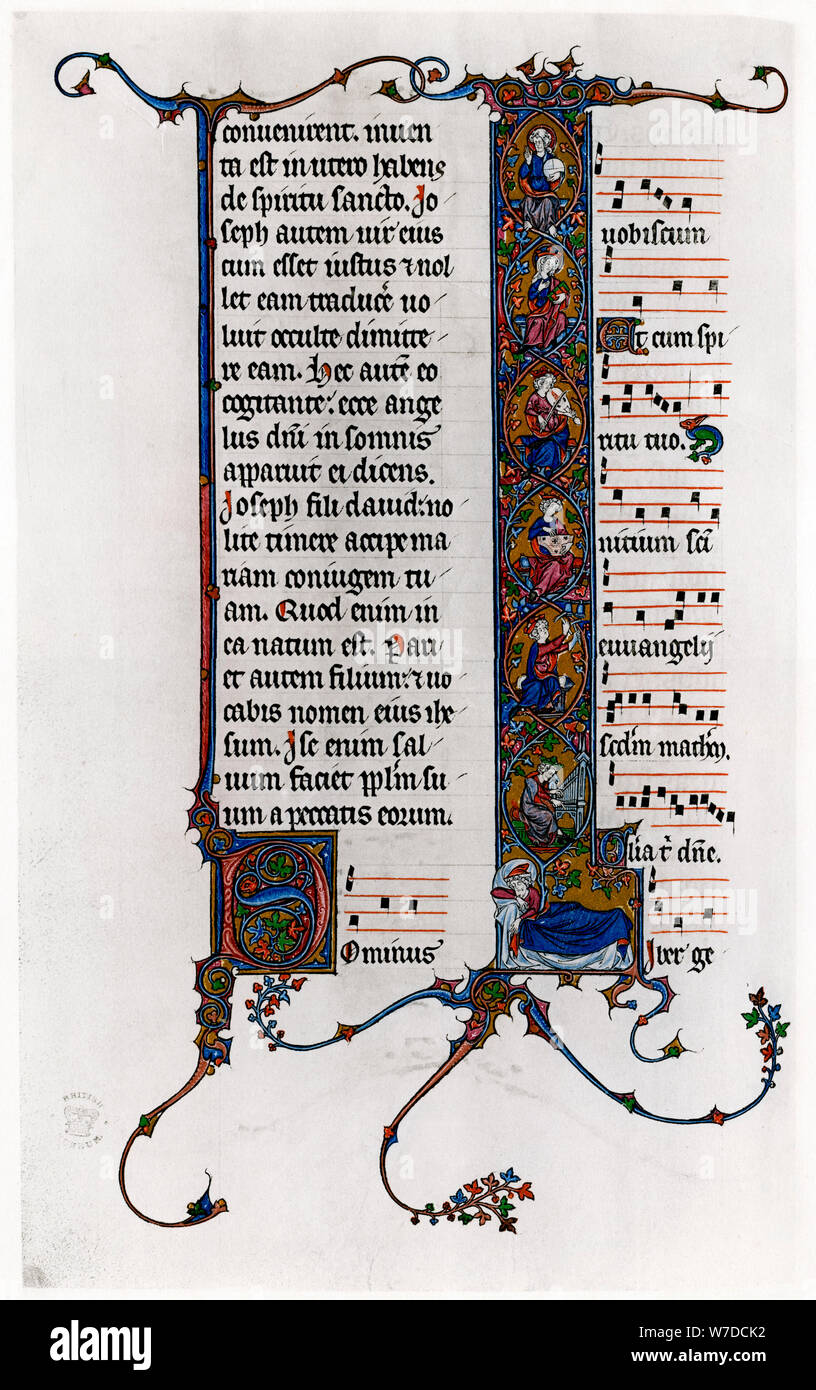 conuenirent. inuen
ta est in utero habens
de spiritu sancto. Jo
seph autem uir eius
cum esset iustus ⁊ nol
let eam traduc̾e uo
luit occulte dimitte
re eam. Hec aut̄e eo
cogitante: ecce ange
lus dn̄i in somnis
apparuit ei dicens.
Joseph fili dauid: no
lite timere accipe ma
riam coniugem tu
am. Quod enim in
ea natum est. Pari
et autem filium: ⁊ uo
cabis nomen eius ihe
sum. Ise enim sal
uum faciet pp̄lm su
um a peccatis eorum.
Dominus
uobiscum
Et cum spi
ritu tuo.
Initium sc̄i
euuangelij
scd̄m math̄m.
Glia t̄ dn̄e.
Liber ge
BRITISH
MUSEUM
alamy
alamy
Image ID: W7DCK2
www.alamy.com